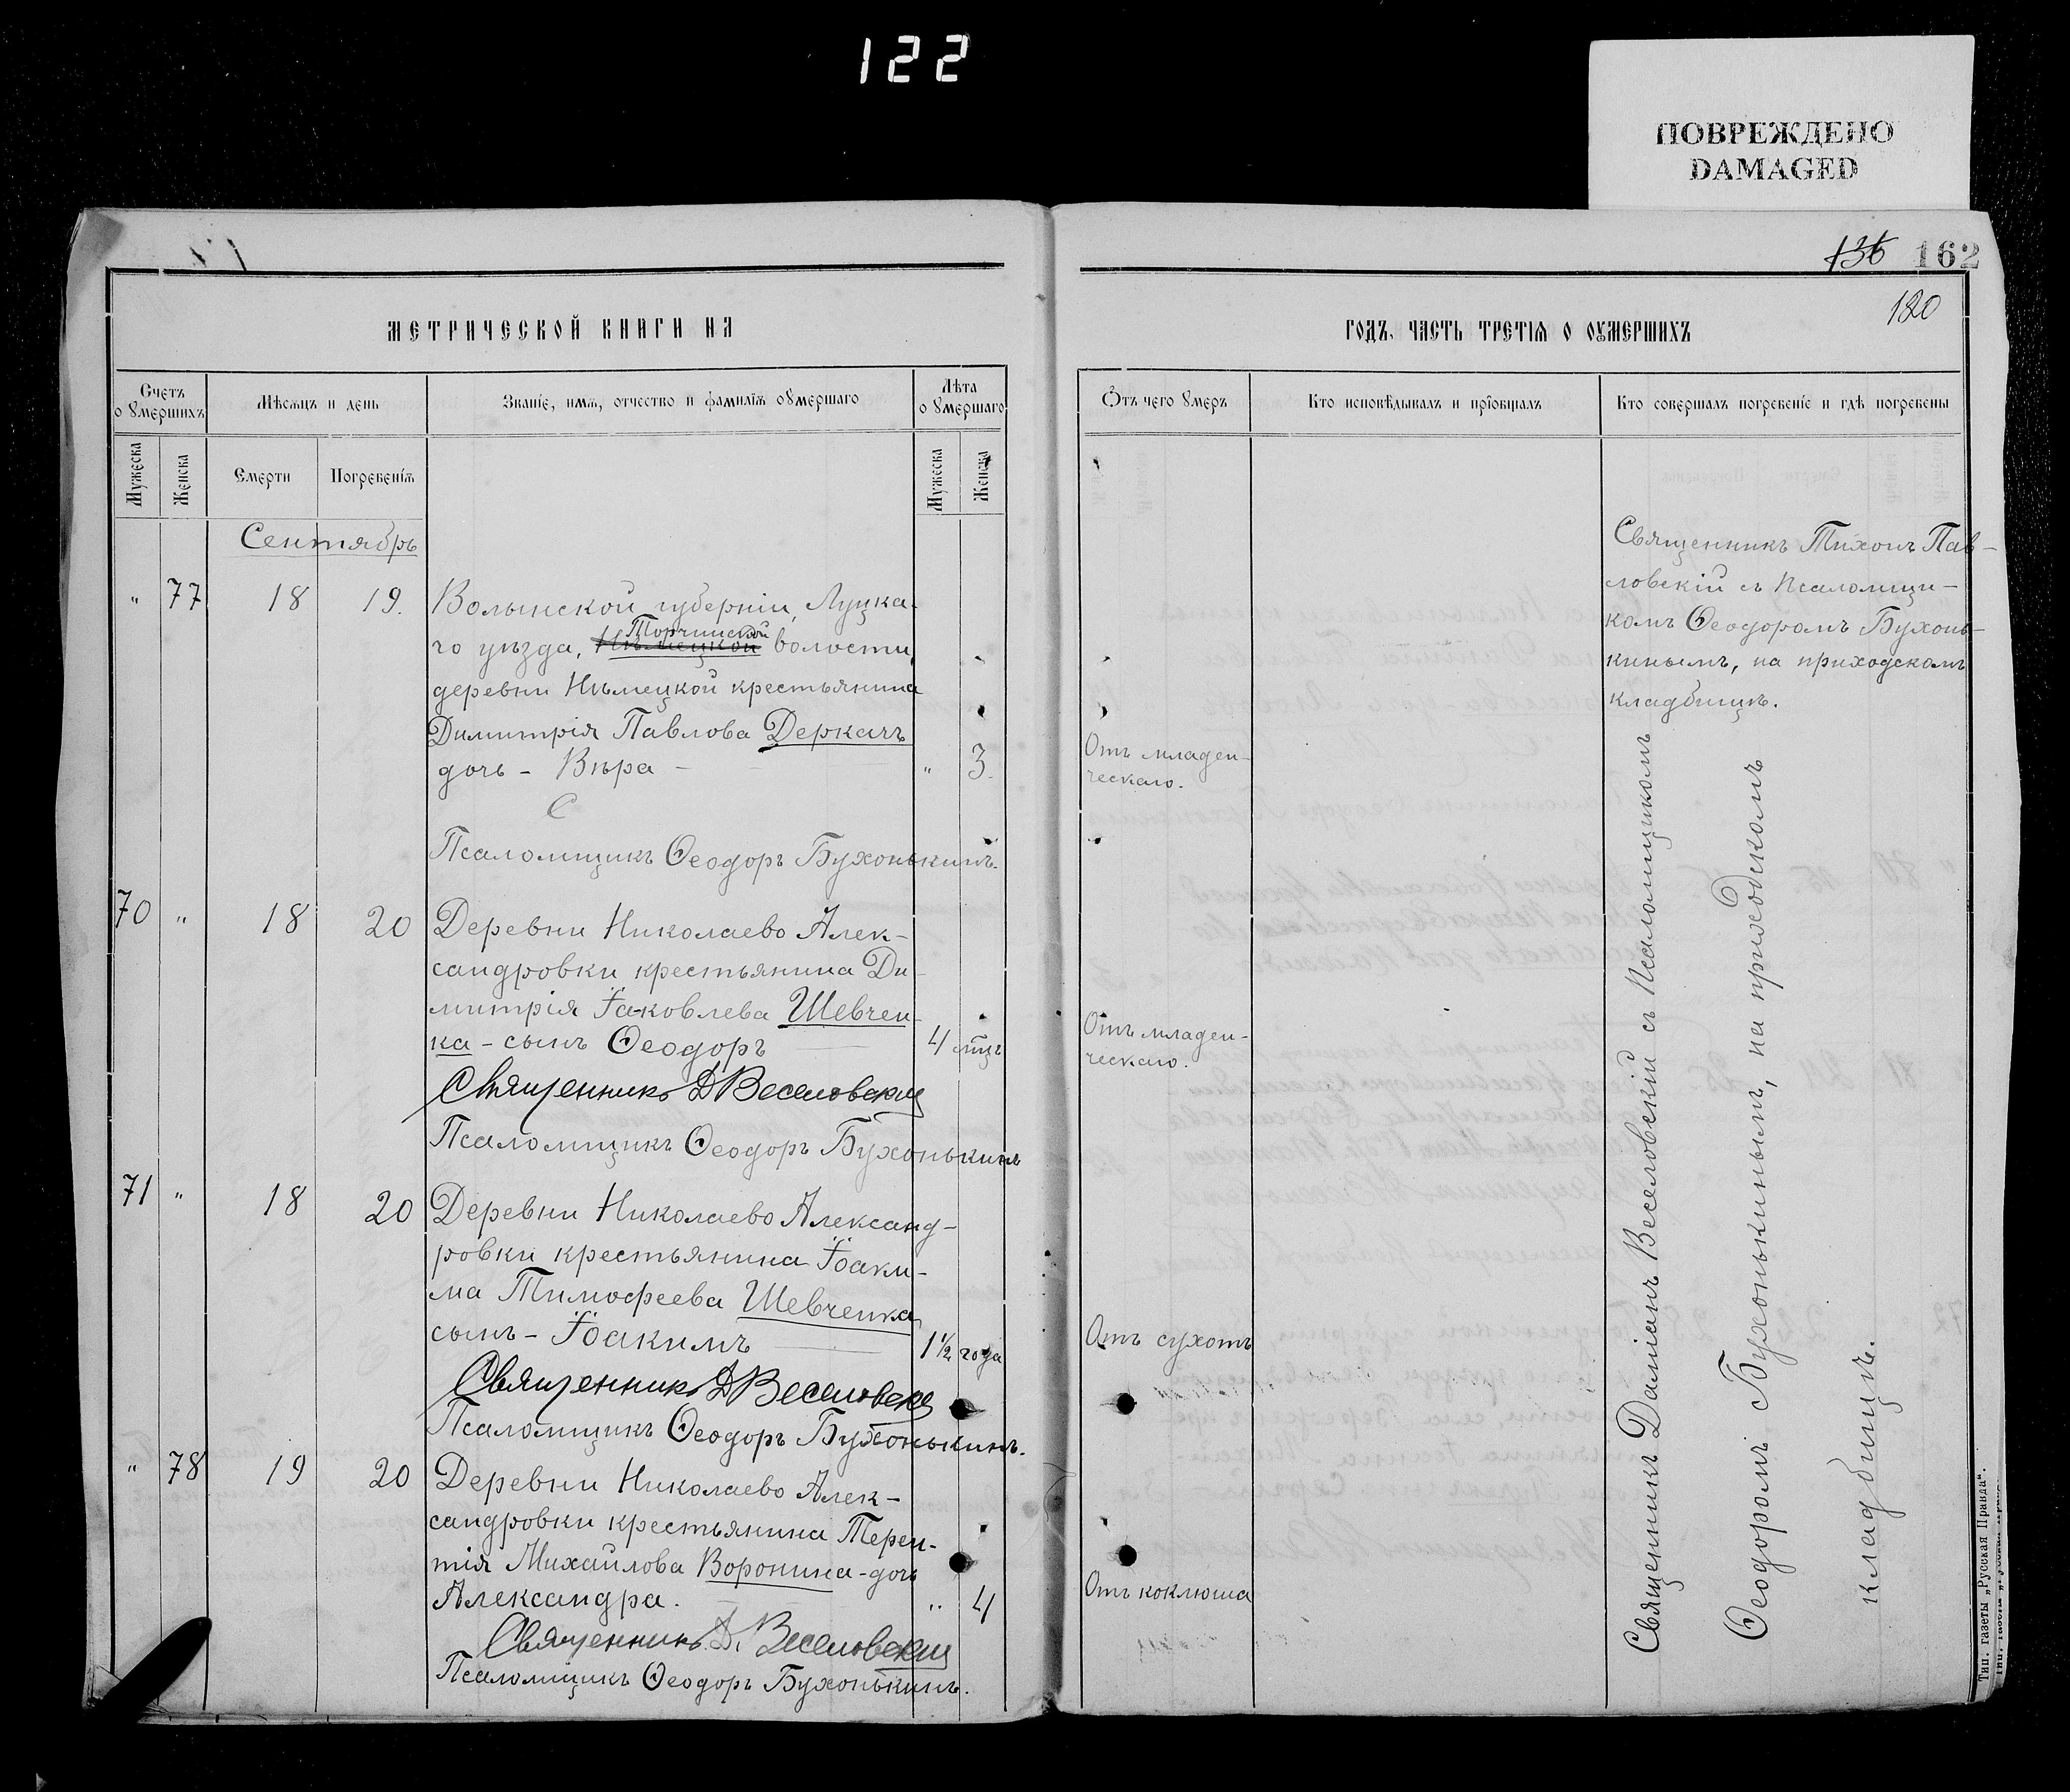 122
ПОВРЕЖДЕНО
DAMAGED
136 162
120
МЕТРИЧЕСКОЙ КНИГИ НА
Счетъ о Ѹмершихъ
Мѣсяцъ и день
Званіе, имя, отчество и фамилія оумершаго
Лѣта оумершаго
Мужеска
Женска
Смерти
Погребенія
Мужеска
Женска
Сентябрь
" 77 18 19. Волынской губерніи, Луцка-
го уѣзда, Нѣмецкой Торчинской волости,
деревни Нѣмецкой крестьянина
Димитрія Павлова Деркачъ
дочь - Вѣра - " 3.
Псаломщикъ Ѳеодоръ Бухонькинъ.
70 " 18 20 Деревни Николаево Алек-
сандровки крестьянина Ди-
митрія Іаковлева Шевчен-
ка - сынъ Ѳеодоръ 4 мцъ
Священникъ Д Веселовскій
Псаломщикъ Ѳеодоръ Бухонькинъ
71 " 18 20 Деревни Николаево Александ-
ровки крестьянина Іоаки-
ма Тимофеева Шевченка
сынъ - Іоакимъ 1½ года
Священникъ Д Веселовскій
Псаломщикъ Ѳеодоръ Бухонькинъ.
" 78 19 20 Деревни Николаево Алек-
сандровки крестьянина Терен-
тія Михайлова Воронина - дочь
Александра. " 4
Священникъ Д. Веселовскій
Псаломщикъ Ѳеодоръ Бухонькинъ.
ГОДЪ, ЧАСТЬ ТРЕТІЯ О ОУМЕРШИХЪ
Отъ чего Ѹмеръ
Кто исповѣдывалъ и пріобщалъ
Кто совершалъ погребеніе и гдѣ погребены
Священникъ Тихонъ Пав-
ловскій съ Псаломщи-
комъ Ѳеодоромъ Бухонь-
кинымъ, на приходскомъ
кладбищѣ.
Отъ младен-
ческаго.
Отъ младен-
ческаго.
Отъ сухотъ
Отъ коклюша
Священникъ Даміанъ Веселовскій съ Псаломщикомъ
Ѳеодоромъ Бухонькинымъ, на приходскомъ
кладбищѣ.
Тип. газеты „Русская Правда“.